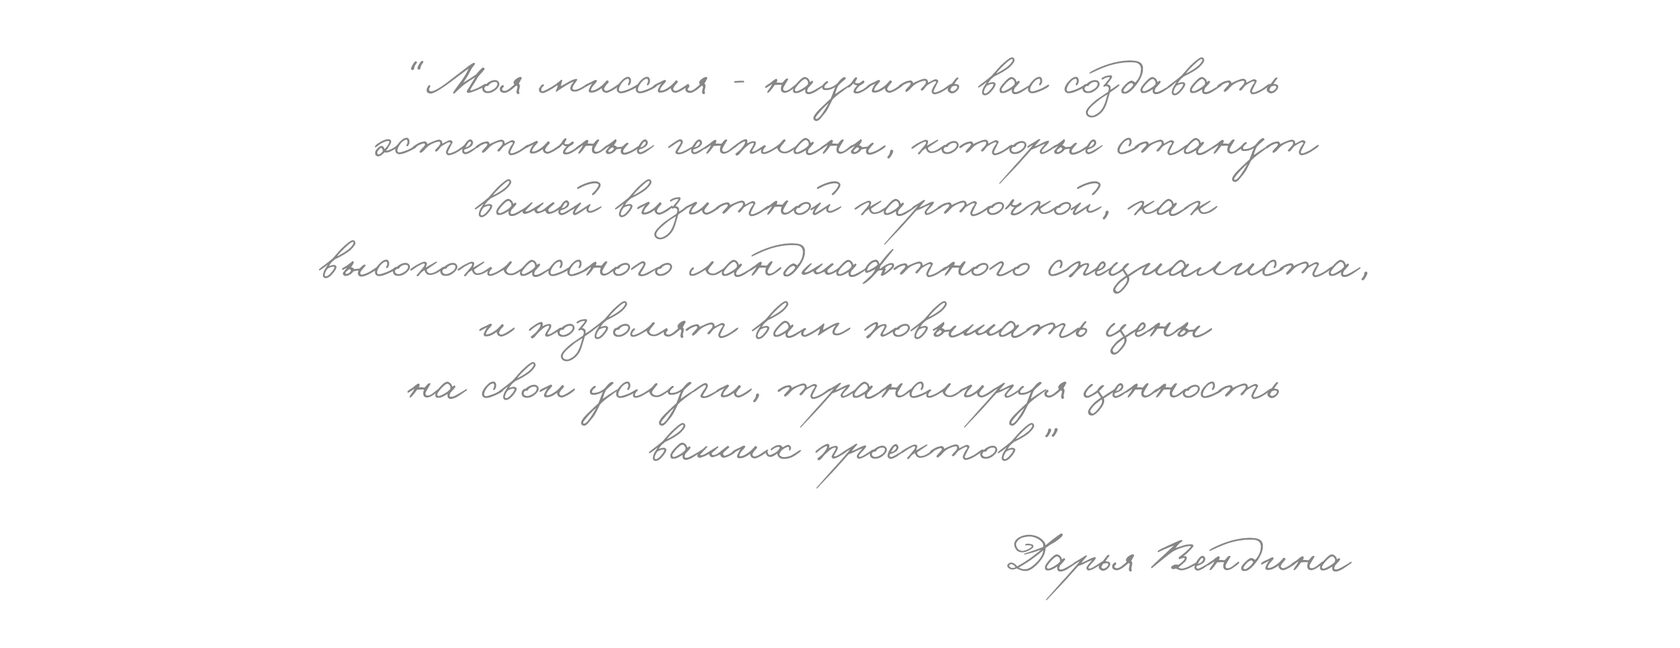 “Моя миссия - научить вас создавать
эстетичные генпланы, которые станут
вашей визитной карточкой, как
высококлассного ландшафтного специалиста,
и позволят вам повышать цены
на свои услуги, транслируя ценность
ваших проектов”
Дарья Вендина